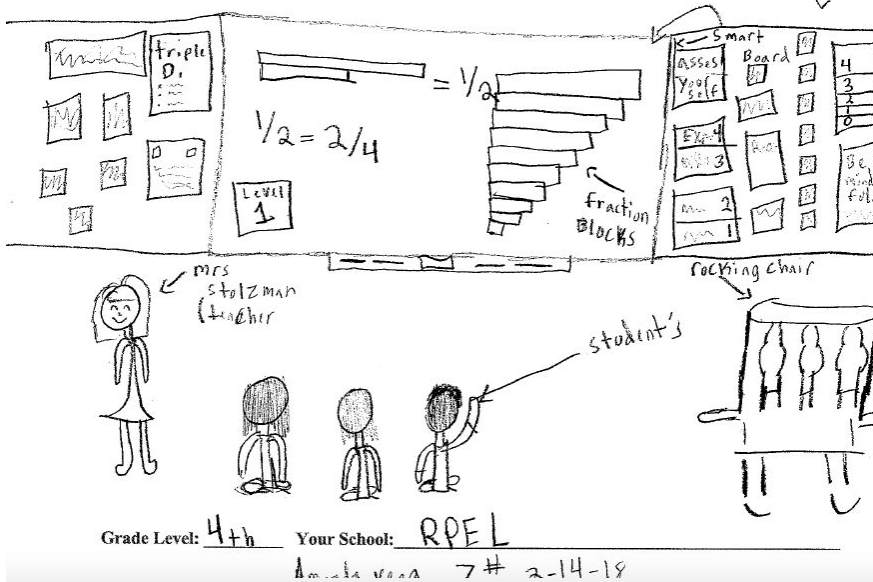 triple
D.
= 1/2
1/2 = 2/4
Level
1
fraction
Blocks
Smart
Board
assess
Your
self
4
3
2
1
4
3
2
1
0
Be
mind
ful
mrs
stolzman
(teacher
student's
rocking chair
Grade Level: 4th Your School: RPEL
7# 2-14-18